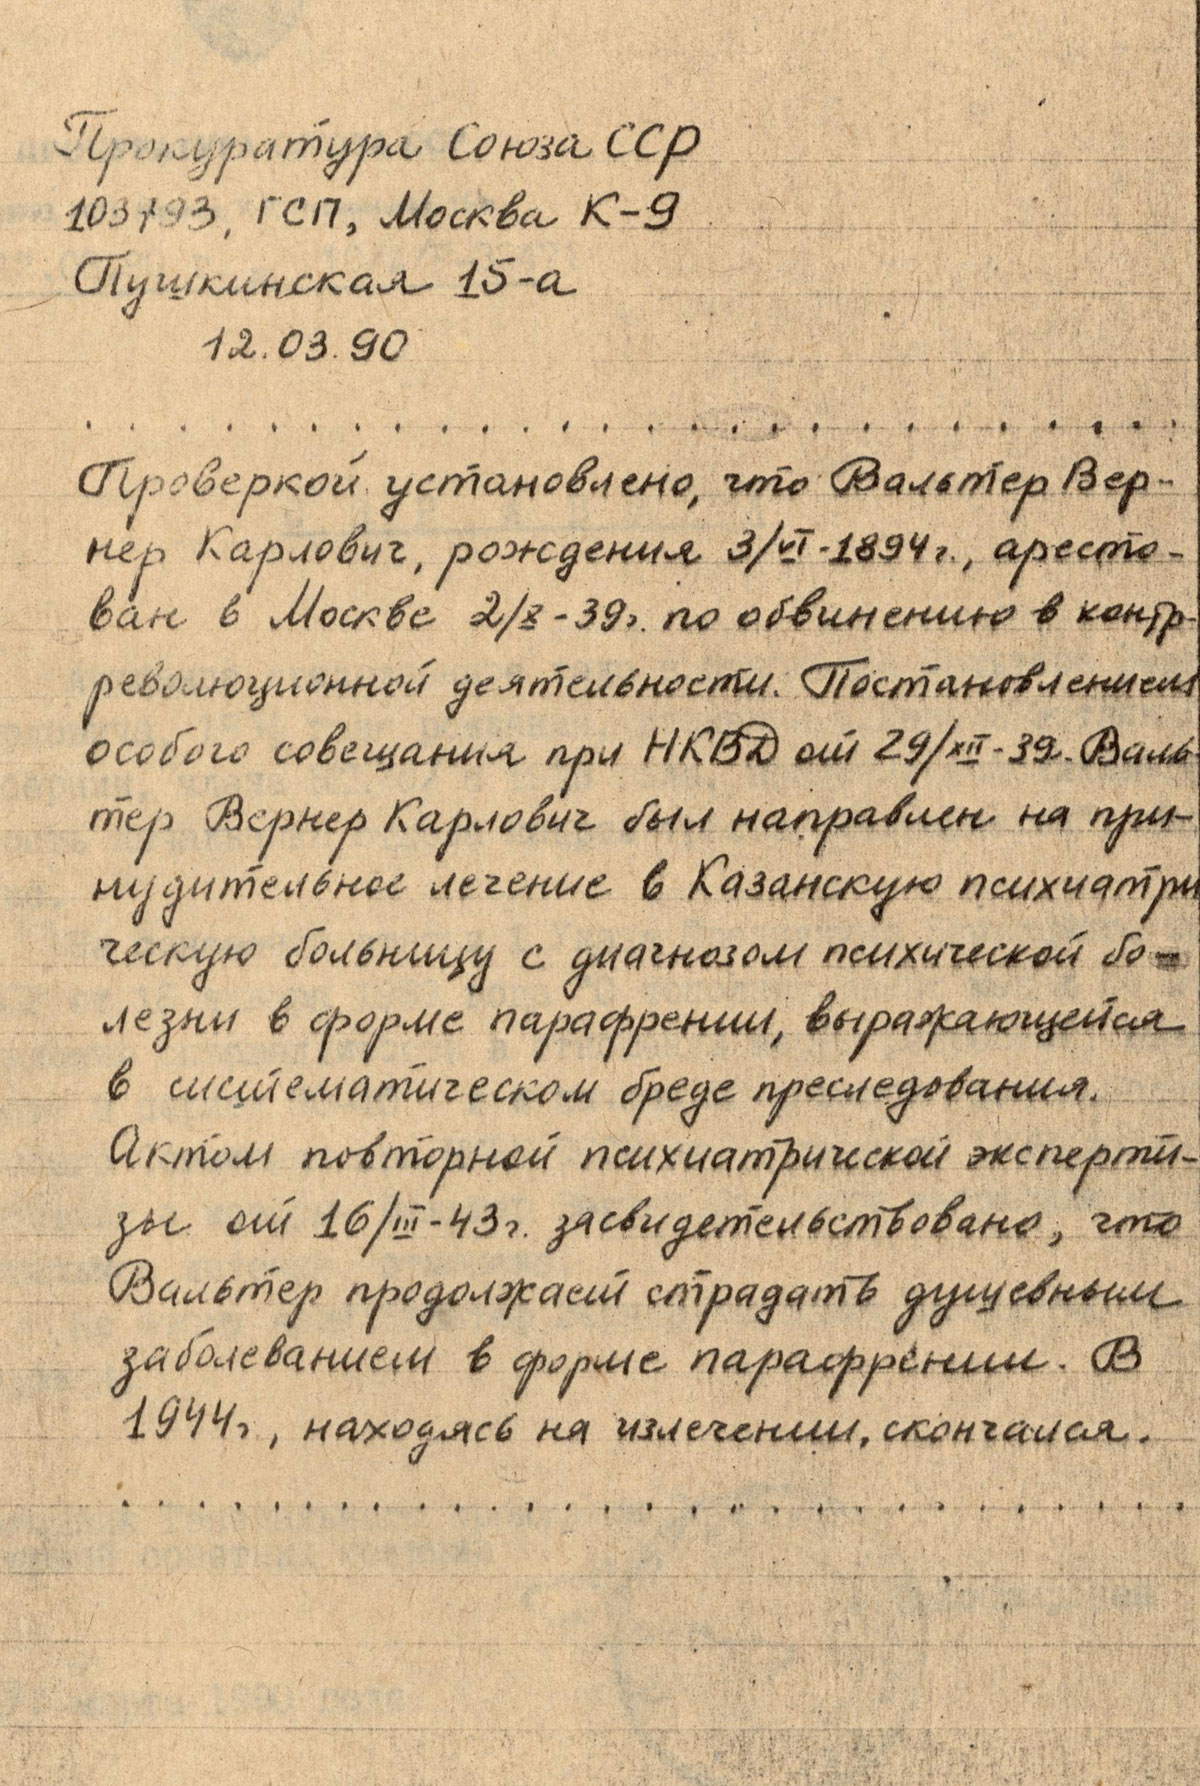 Прокуратура Союза ССР
103793, ГСП, Москва К-9
Пушкинская 15-а
12.03.90
. . . . . . . . . . . . . . . . . . . . . . . . . . .
Проверкой установлено, что Вальтер Вер-
нер Карлович, рождения 3/VI-1894г., аресто-
ван в Москве 2/X-39г. по обвинению в контр-
революционной деятельности. Постановлением
особого совещания при НКВД от 29/XII-39. Валь-
тер Вернер Карлович был направлен на при-
нудительное лечение в Казанскую психиатри
ческую больницу с диагнозом психической бо-
лезни в форме парафрении, выражающейся
в систематическом бреде преследования.
Актом повторной психиатрической эксперти-
зы от 16/III-43г. засвидетельствовано, что
Вальтер продолжает страдать душевным
заболеванием в форме парафрении. В
1944г, находясь на излечении, скончался.
. . . . . . . . . . . . . . . . . . . . . . . . . . .